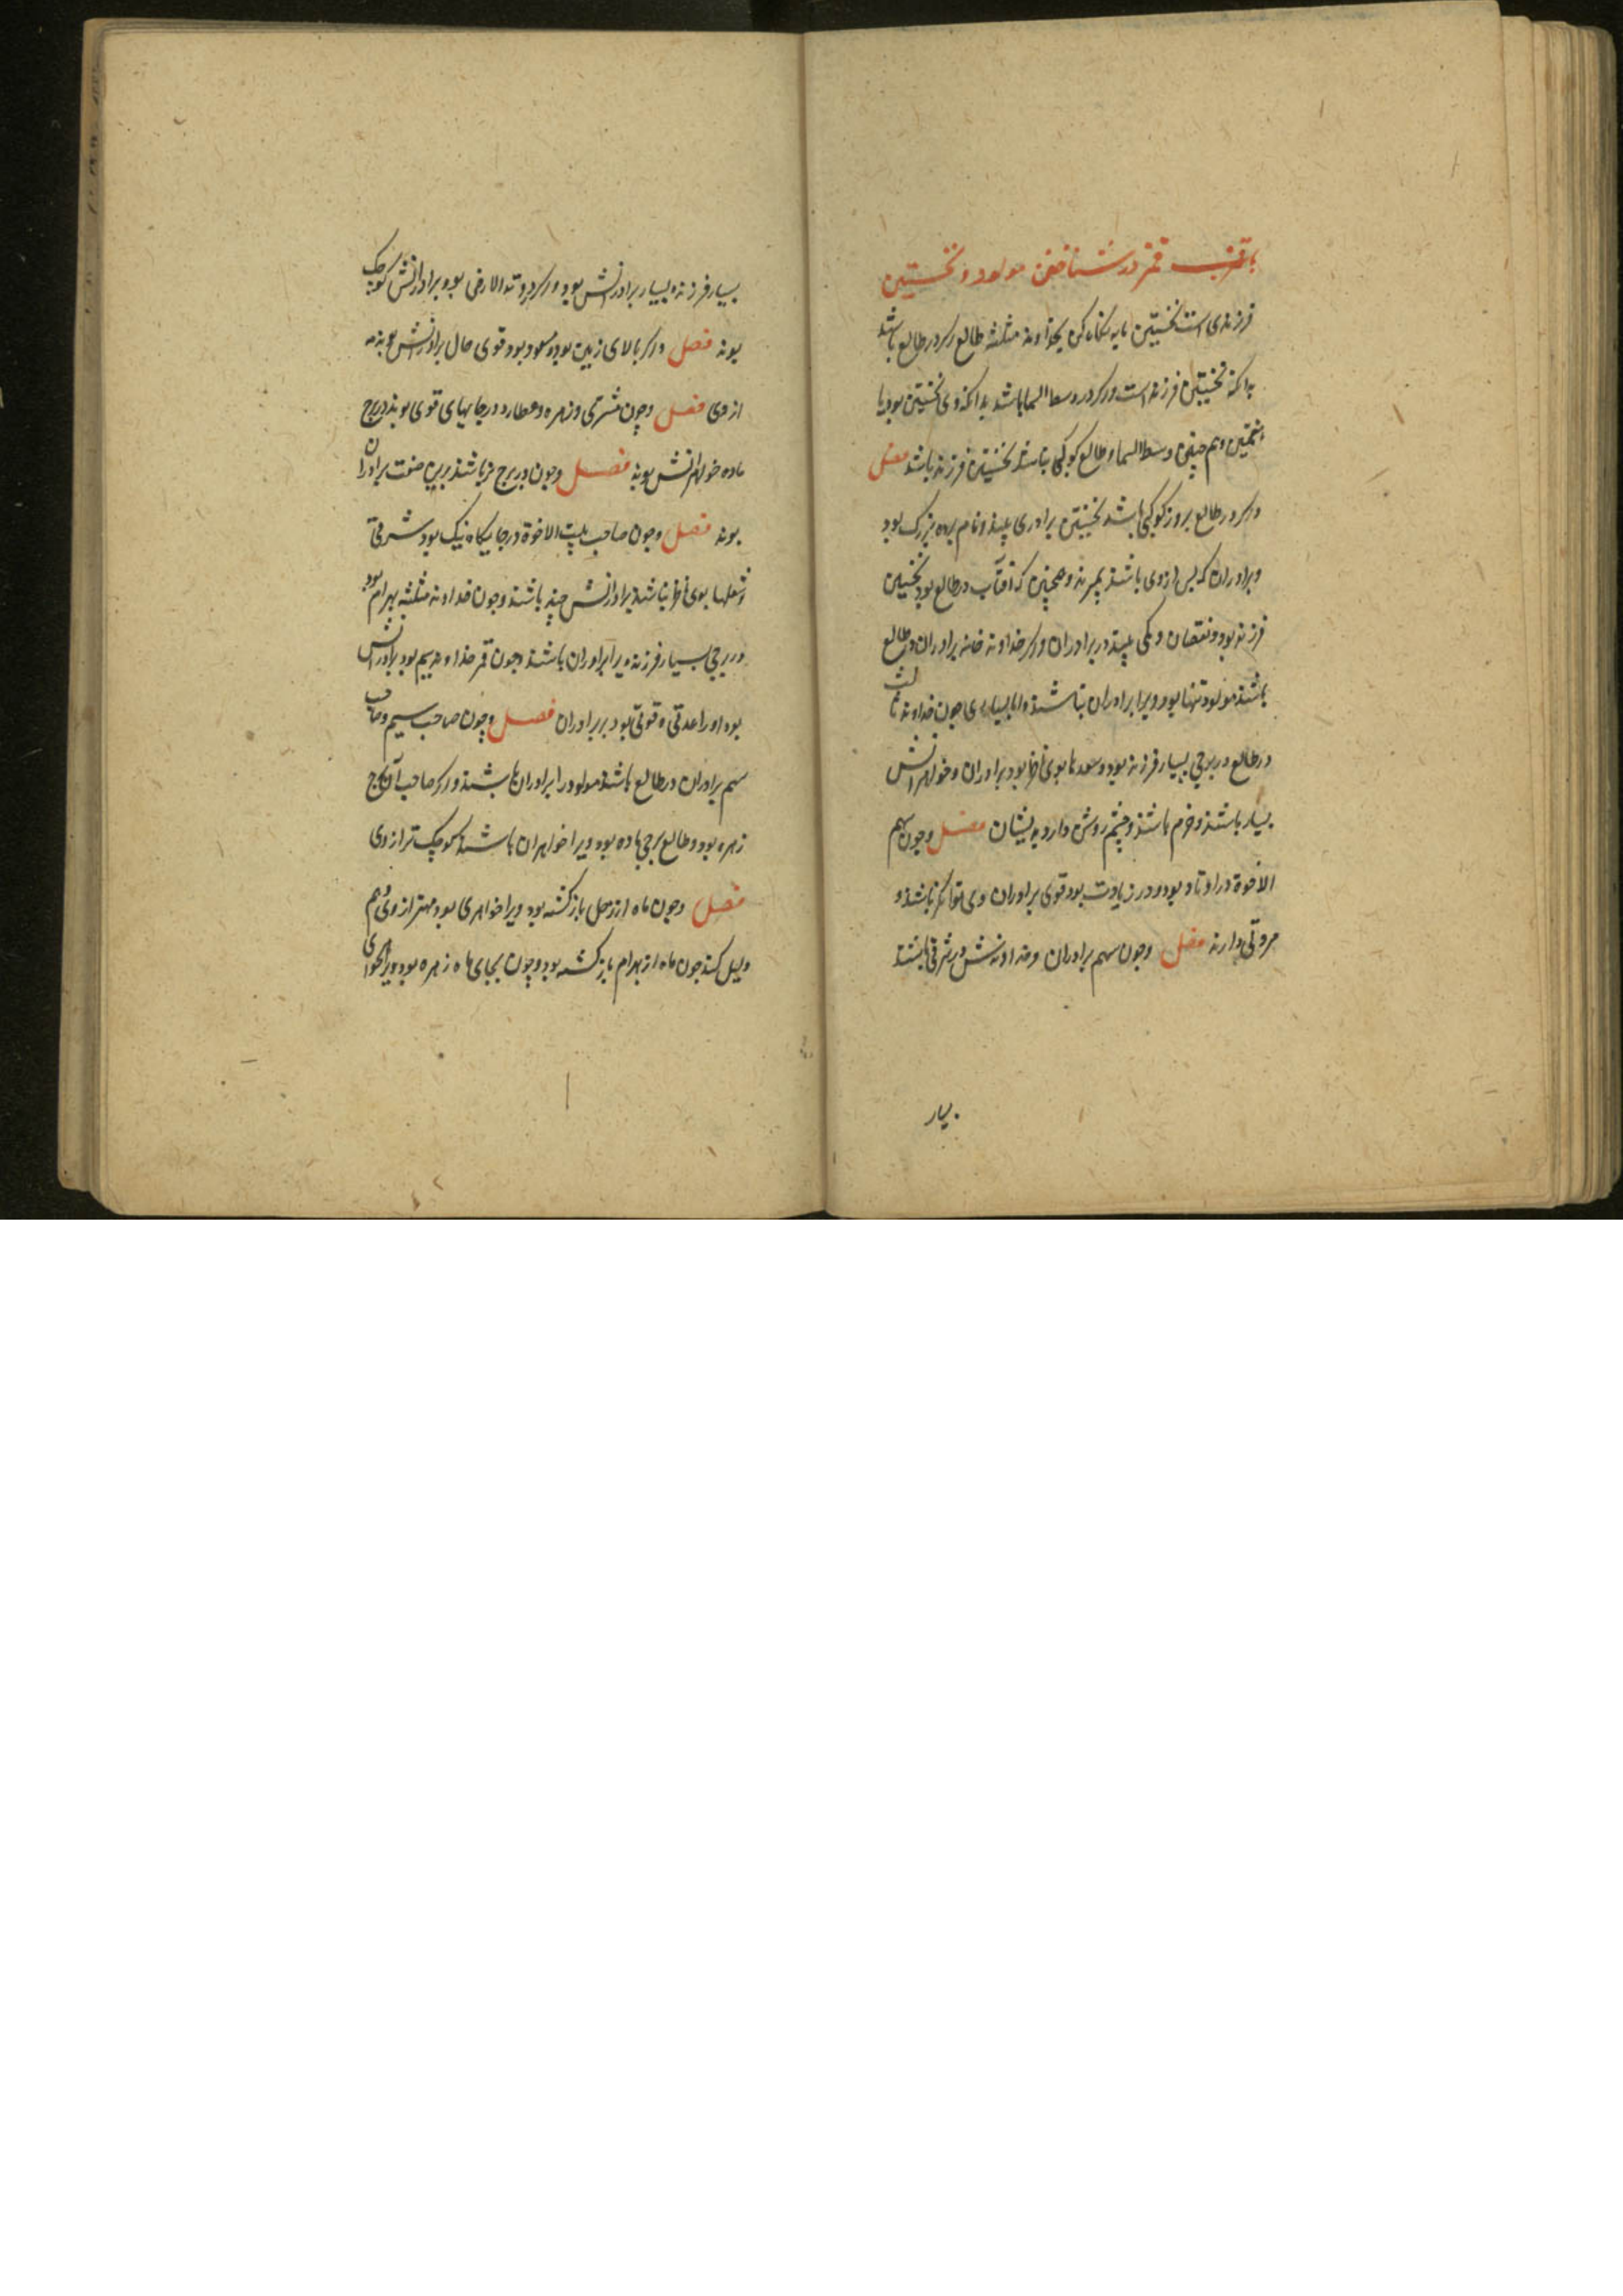 در شناختن مولود و نخستین
فرزندی است نخستین یا نه نگاه کن بخداوند مثلثه طالع اگر در طالع باشد
بدانکه نخستین فرزند است و اگر در وسط السما باشد بدانکه وی نخستین بود یا
وهم چنین وسط السما و طالع کوکبی نباشد نخستین فرزند باشد فصل
و اگر در طالع بروز کوکبی باشد نخستین برادری بیند و نام برده بزرگ بود
و برادران که پس از وی باشند بمیرند و همچنین که آفتاب در طالع بود نخستین
فرزند بود و نقصان و کمی بیند در برادران و اگر خداوند خانه برادران در طالع
باشند مولود تنها بود و ویرا برادران نباشند اما بسیاری چون خداوند ثالث
در طالع در برجی بسیار فرزند بود و سعدها بوی ناظر بود برادران و خواهرانش
بسیار باشند و خرم باشند و چشم روشن دارد بدیشان فصل و چون سهم
الاخوة در اوتاد بود و در زیادت بود قوی برادران وی توانگر باشند و
مروتی دارند فصل وچون سهم برادران و خداوندش در شرقی باشند
بسیار
بسیار فرزند بسیار برادرانش بود و اگر در وتد الارض بود برادرانش کوچک
بوند فصل و اگر بالای زمین بود و مسعود بود قوی حال برادرانش بوند به
از وی فصل وچون مشرقی و زهره و عطارد در جایهای قوی بوند در برج
ماده خواهرانش بوند فصل وچون در برج نر باشند برین صفت برادران
بوند فصل وچون صاحب بیت الاخوة در جایگاه نیک بود شرقی
بوی ناظر نباشند برادرانش چند باشند و چون خداوند مثلثه بهرام بود
در برجی بسیار فرزند ویرا برادران باشند و چون قمر خداوند سیم بود برادرانش
بود او را عدتی و قوتی بود بر برادران فصل وچون صاحب سیم و صاحب
سهم برادران در طالع باشند مولود را برادران باشند و اگر صاحب آن برج
زهره بود و طالع برجی ماده بود ویرا خواهران باشند کوچک تر از وی
فصل وچون ماه از زحل بازگشته بود ویرا خواهری بود مهتر از وی و هم
دلیل کند چون ماه از بهرام بازگشته بود و چون بجای ماه زهره بود